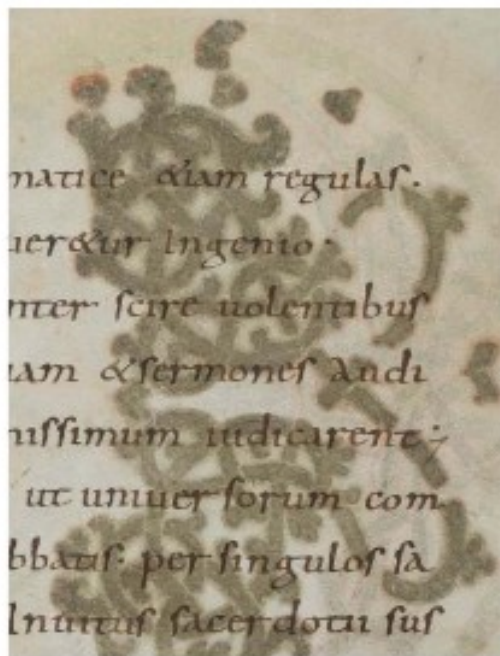 matice &iam regulas.
uer&ur Ingenio.
nter scire uolentibus
iam & sermones Audi
nissimum iudicarent;
ut uniuersorum com
bbatis. per singulos sa
Inuitus sacerdotii sus